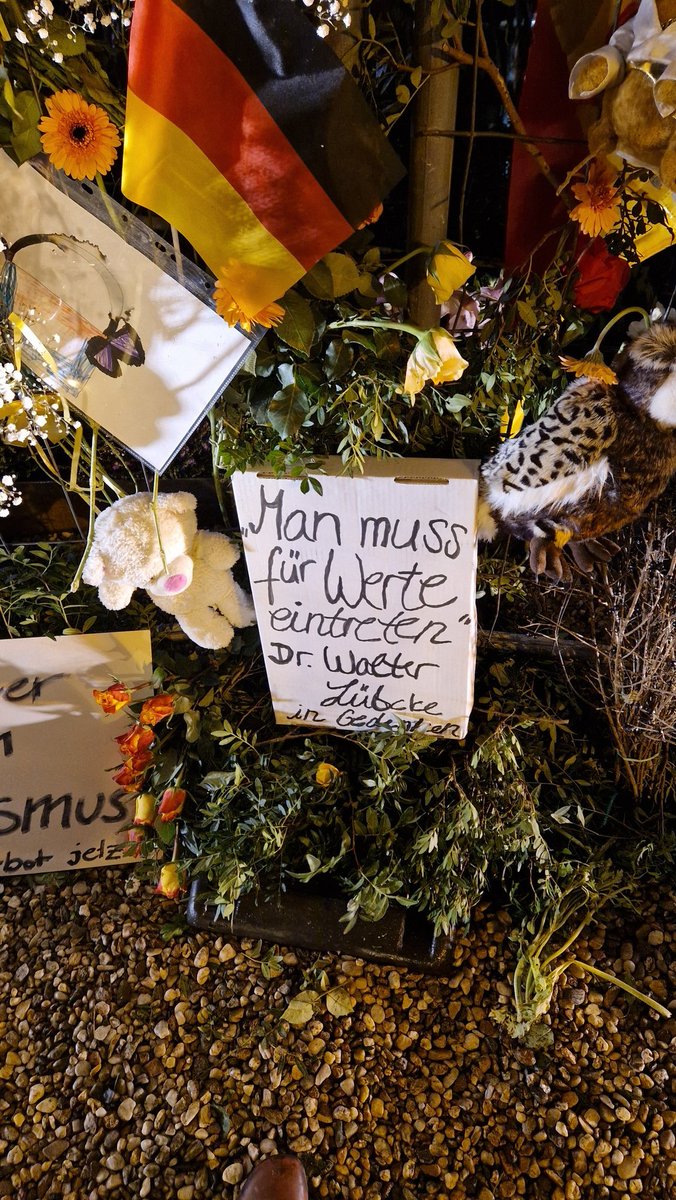 „Man muss
für Werte
eintreten"
Dr. Walter
Lübcke
in Gedenken
ver
smus
bot jetz